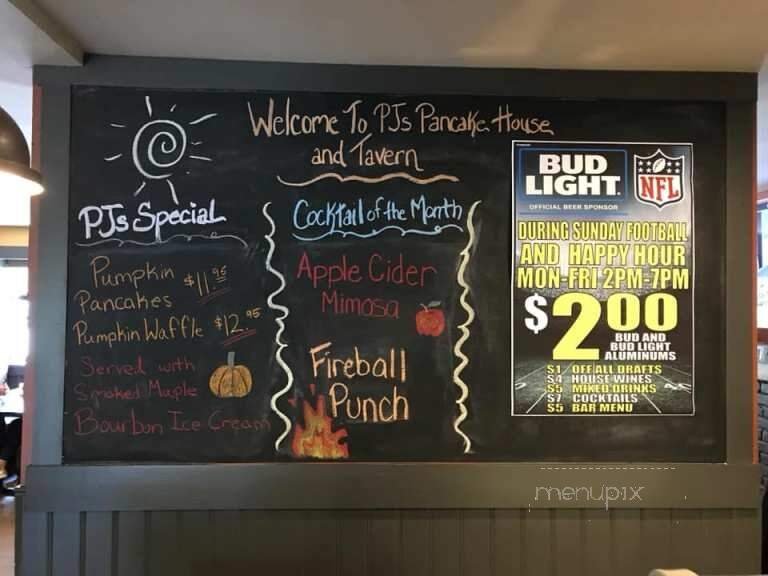 Welcome To PJs Pancake House
and Tavern
PJs Special
Pumpkin $11.95
Pancakes
Pumpkin Waffle $12.95
Served with
Smoked Maple
Bourbon Ice Cream
Cocktail of the Month
Apple Cider
Mimosa
Fireball
Punch
BUD
LIGHT
NFL
OFFICIAL BEER SPONSOR
DURING SUNDAY FOOTBALL
AND HAPPY HOUR
MON-FRI 2PM-7PM
$200
BUD AND
BUD LIGHT
ALUMINUMS
$1 OFF ALL DRAFTS
$4 HOUSE WINES
$5 MIXED DRINKS
$7 COCKTAILS
$5 BAR MENU
menupix